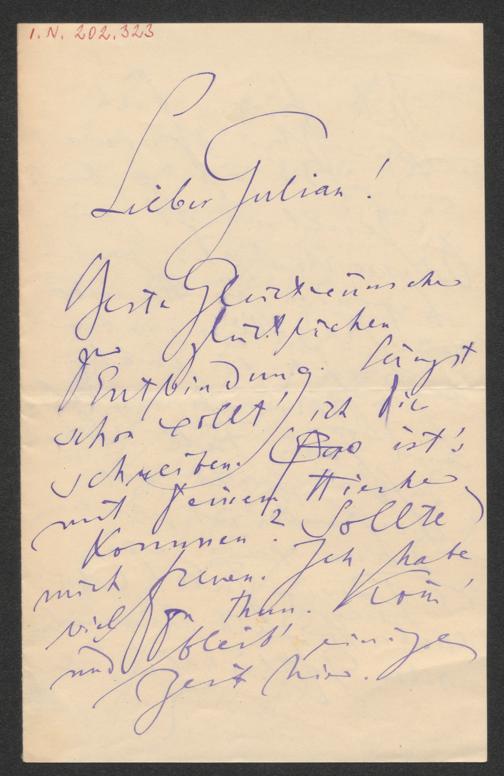 I.N. 202.323
Lieber Julian!
Beste Glückwünsche
zur glücklichen
Entbindung. Längst
schon wollt' ich dir
schreiben. Was ist's
mit deinem Hierher
kommen? Sollte
mich freuen. Ich habe
viel zu thun. Kom̄'
und bleib' einige
Zeit hier.